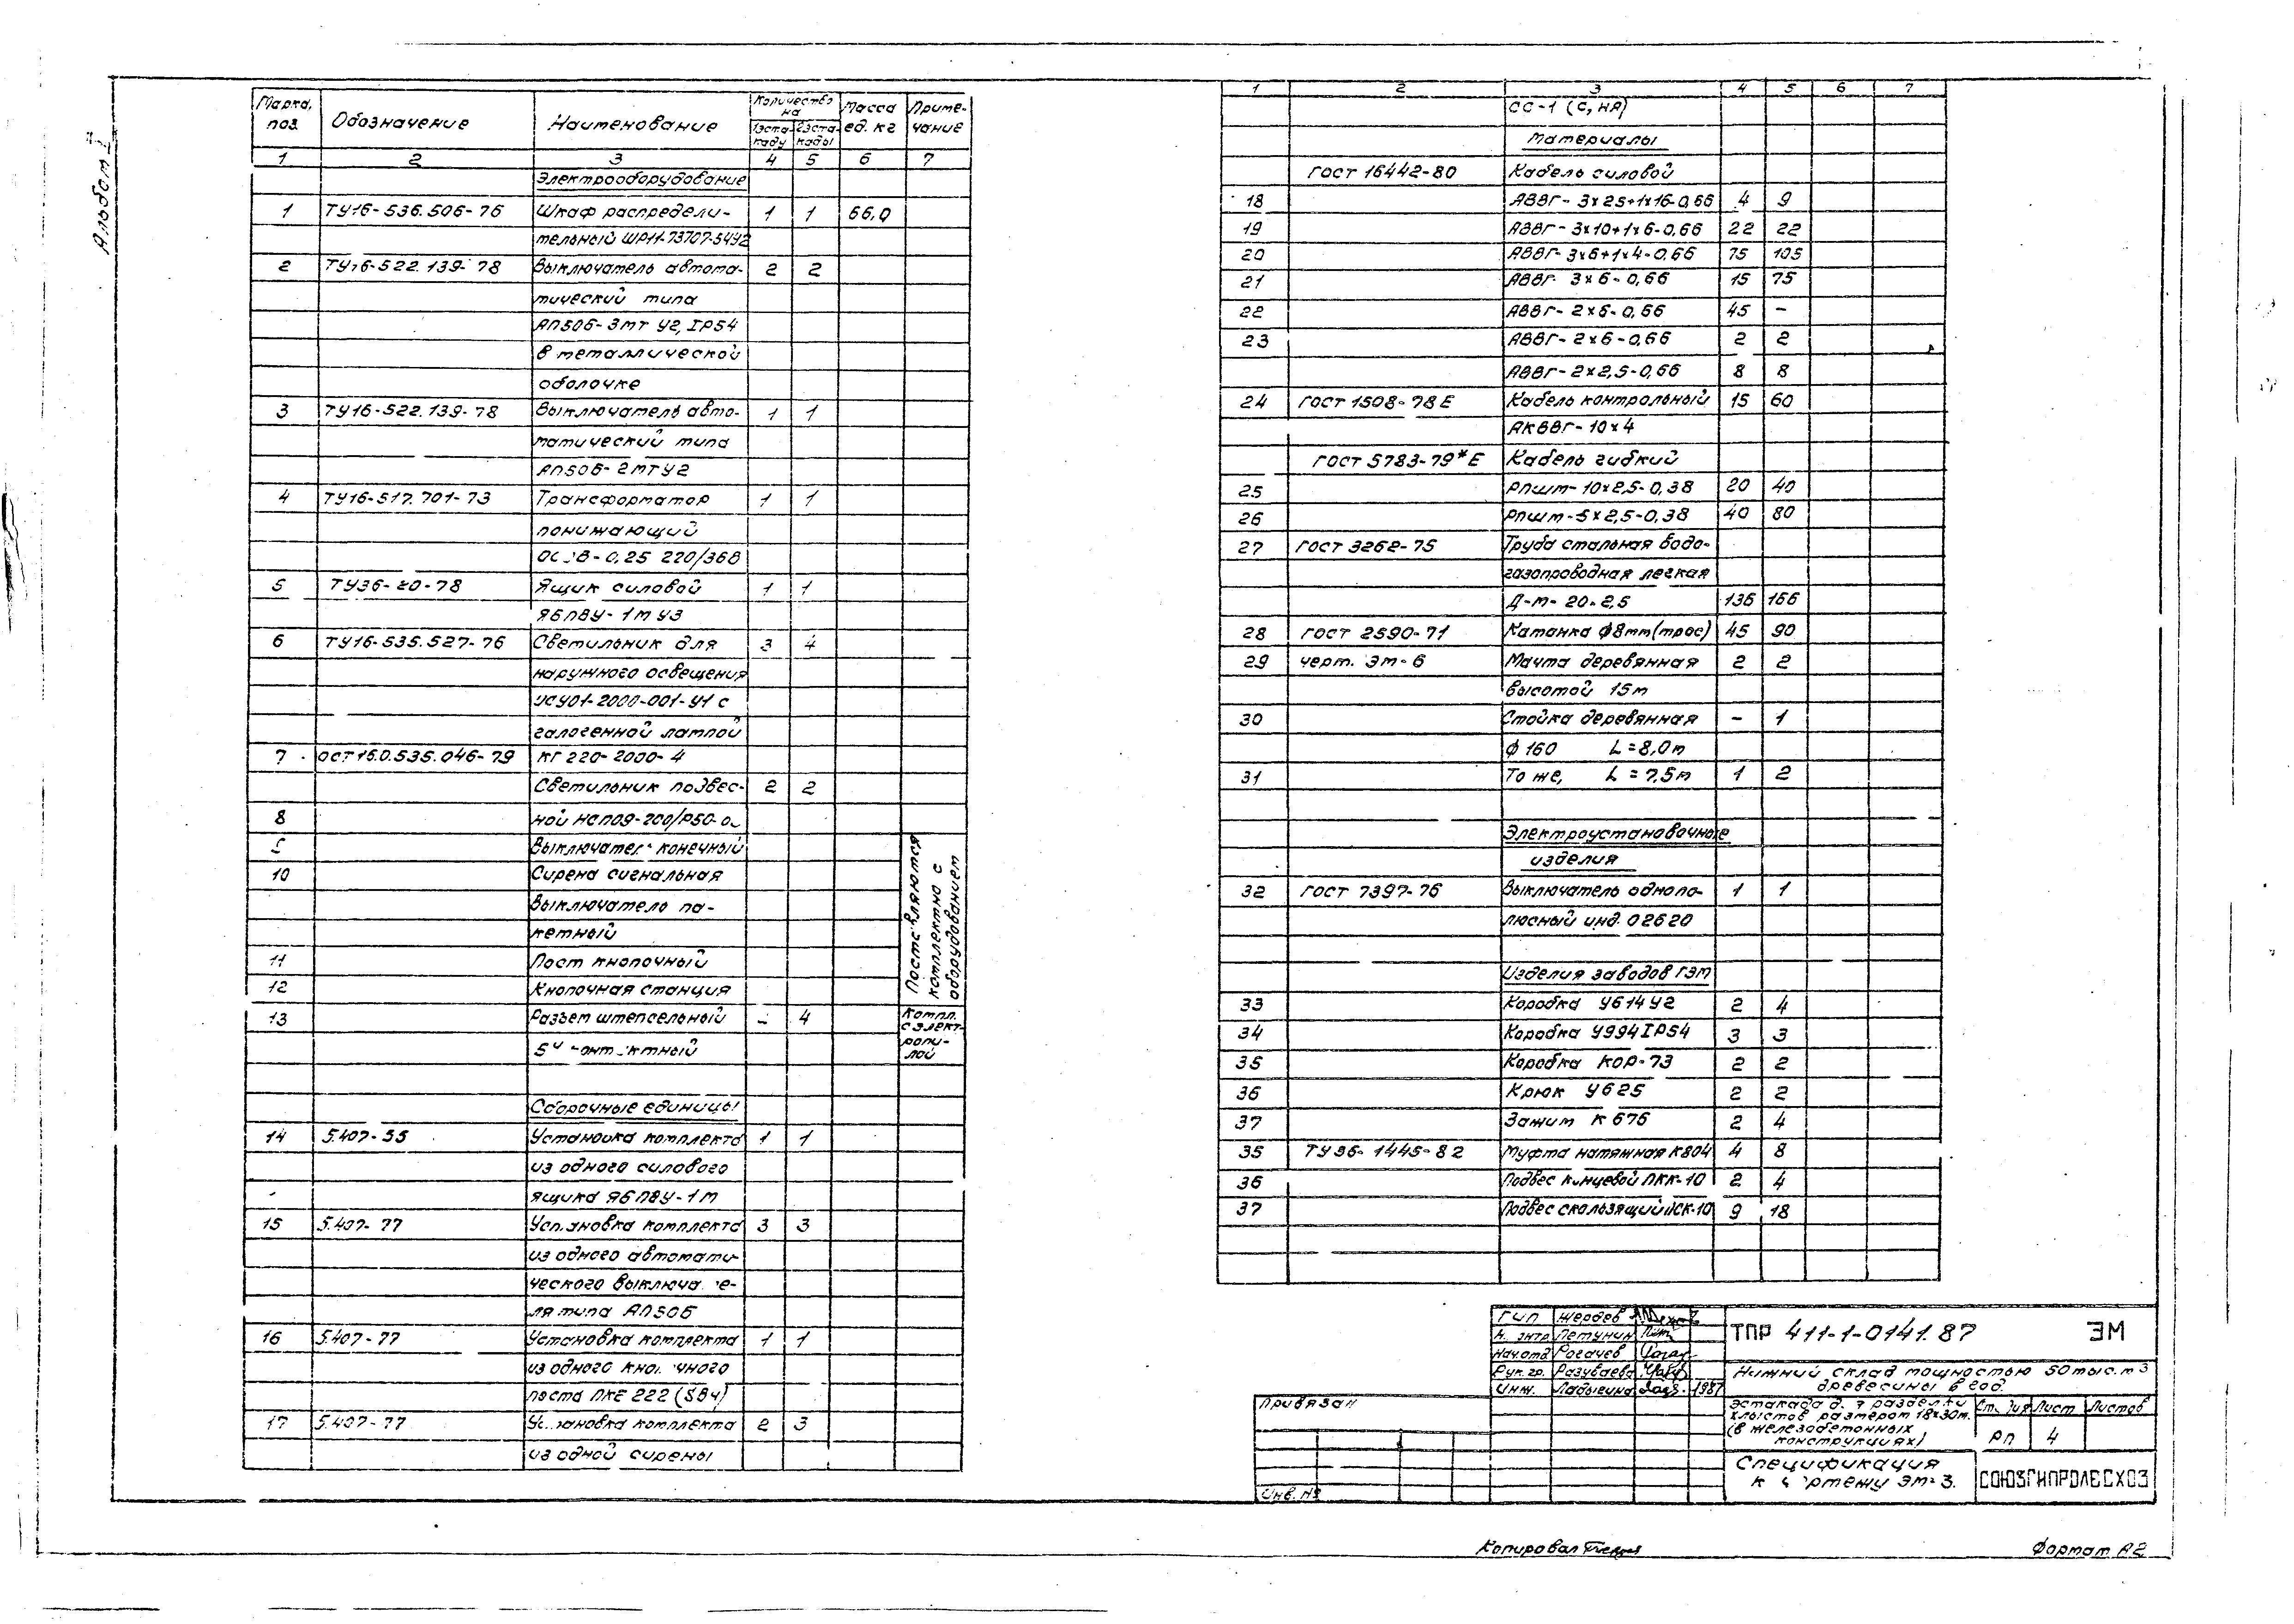 Альбом
Марка, поз. Обозначение Наименование Количество на Масса ед. кг Приме-чание
1эста-каду 2эста-кады
1 2 3 4 5 6 7
Электрооборудование
1 ТУ16-536.506-76 Шкаф распредели- 1 1 66,0
тельный ШР11-73707-54У2
2 ТУ16-522.139-78 Выключатель автома- 2 2
тический типа
АП50Б-3мт У2, IP54
в металлической
оболочке
3 ТУ16-522.139-78 Выключатель авто- 1 1
матический типа
АП50Б-2МТУ2
4 ТУ16-517.701-73 Трансформатор 1 1
понижающий
0,25 220/36В
5 ТУ36-20-78 Ящик силовой 1 1
ЯБПВУ-1м У3
6 ТУ16-535.527-76 Светильник для 3 4
наружного освещения
УСУ01-2000-001-У1 с
галогенной лампой
7 ОСТ16.0.535.046-79 КГ 220-2000-4
Светильник подвес- 2 2
8 ной НСП09-200/Р50-0
Выключатель конечный
10 Сирена сигнальная
Выключатель па-
кетный
11 Пост кнопочный
12 Кнопочная станция
Поставляются комплектно с оборудованием
13 Разъем штепсельный – 4 Компл. с элект-ропи-лой
5и контактный
Сборочные единицы
14 5.407-55 Установка комплекта 1 1
из одного силового
ящика ЯБПВУ-1м
15 5.407-77 Установка комплекта 3 3
из одного автомати-
ческого выключате-
ля типа АП50Б
16 5.407-77 Установка комплекта 1 1
из одного кнопочного
поста ПКЕ 222 (SВ4)
17 5.407-77 Установка комплекта 2 3
из одной сирены
1 2 3 4 5 6 7
СС-1 (С, НЯ)
Материалы
ГОСТ 16442-80 Кабель силовой
18 АВВГ-3х25+1х16-0,66 4 9
19 АВВГ-3х10+1х6-0,66 22 22
20 АВВГ-3х6+1х4-0,66 75 105
21 АВВГ 3х6-0,66 15 75
22 АВВГ-2х6-0,66 45 –
23 АВВГ-2х6-0,66 2 2
АВВГ-2х2,5-0,66 8 8
24 ГОСТ 1508-78Е Кабель контрольный 15 60
АКВВГ-10х4
ГОСТ 5783-79*Е Кабель гибкий
25 РПШМ-10х2,5-0,38 20 40
26 РПШМ-5х2,5-0,38 40 80
27 ГОСТ 3262-75 Труба стальная водо-
газопроводная легкая
Д-м-20×2,5 136 166
28 ГОСТ 2590-71 Катанка ф8мм(трос) 45 90
29 черт. ЭМ-6 Мачта деревянная 2 2
высотой 15м
30 Стойка деревянная – 1
ф160 L=8,0м
31 То же, L=7,5м 1 2
Электроустановочные
изделия
32 ГОСТ 7397-76 Выключатель однопо- 1 1
люсный инд. 02620
Изделия заводов ГЭМ
33 Коробка У614У2 2 4
34 Коробка У994IP54 3 3
35 Коробка КОР-73 2 2
36 Крюк У625 2 2
37 Зажим К676 2 4
35 ТУ36-1445-82 Муфта натяжная К804 4 8
36 Подвес концевой ПКК-10 2 4
37 Подвес скользящий ПСК-10 9 18
ГИП Жердев
Н. контр Петунин
Нач.отд Рогачев
Рук. гр. Разуваева
Инж. Ладыгина 1987
ТПР 411-1-0141.87 ЭМ
Нижний склад мощностью 50 тыс. м3
древесины в год.
Эстакада для разделки
хлыстов размером 18х30м.
(в железобетонных
конструкциях)
Стадия Лист Листов
РП 4
Спецификация
к чертежу ЭМ-3.
СОЮЗГИПРОЛЕСХОЗ
Привязан
Инв. №
Копировал
Формат А2